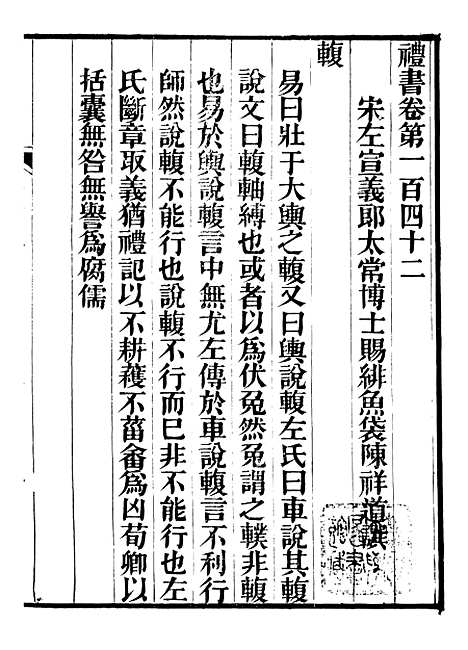 禮書卷第一百四十二
宋左宣義郎太常博士賜緋魚袋陳祥道撰
輹
易曰壯于大輿之輹又曰輿說輹左氏曰車說其輹
說文曰輹軸縛也或者以爲伏兔然兔謂之轐非輹
也易於輿說輹言中無尤左傳於車說輹言不利行
師然說輹不能行也說輹不行而已非不能行也左
氏斷章取義猶禮記以不耕穫不菑畬爲凶荀卿以
括囊無咎無譽爲腐儒